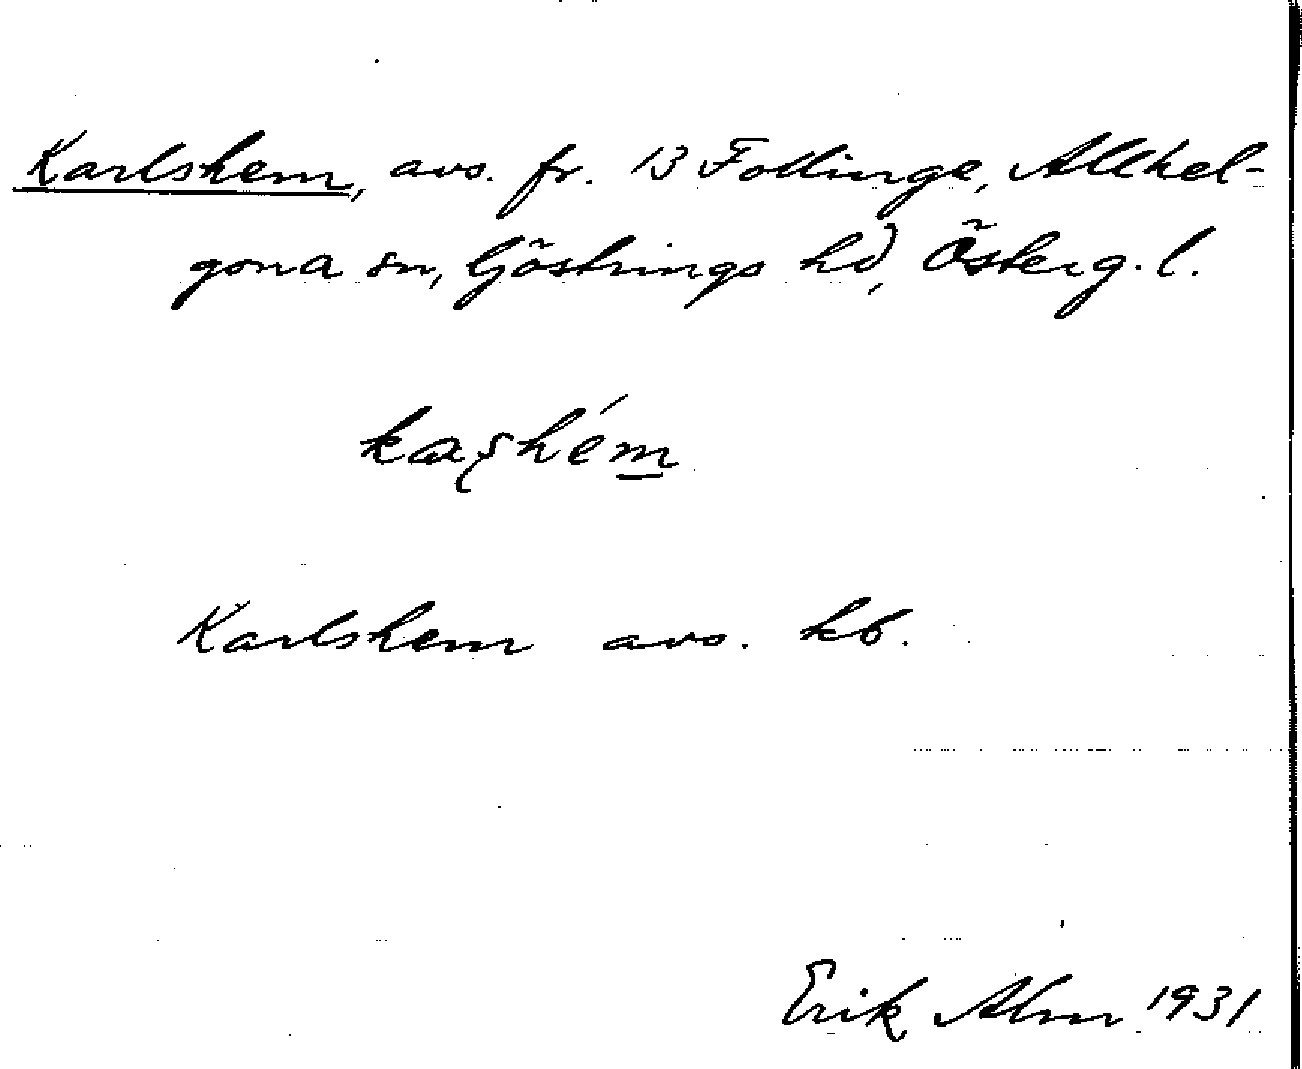 Karlshem, avs. fr. 13 Follinge, Allhel-
gona sn, Göstrings hd, Österg. l.
kaʂhém
Karlshem avs. kb.
Erik Alm 1931